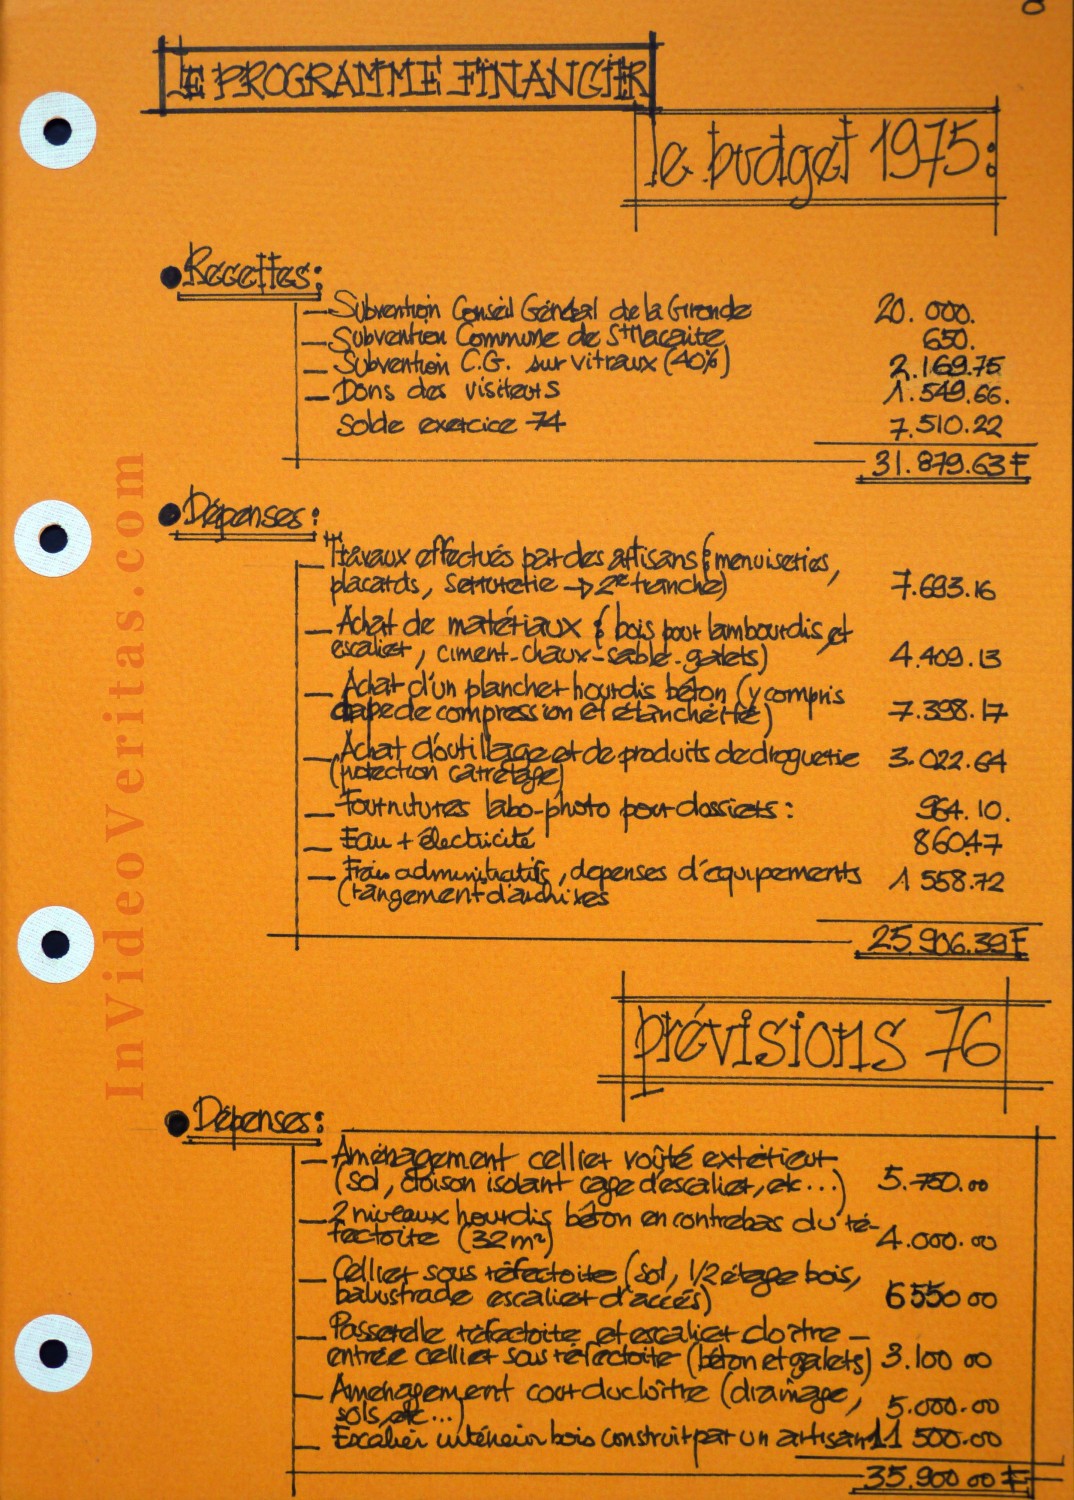 LE PROGRAMME FINANCIER
le budget 1975:
Recettes:
— Subvention Conseil Général de la Gironde 20. 000.
— Subvention Commune de St Macaire 650.
— Subvention C.G. sur vitraux (40%) 2.169.75
— Dons des visiteurs 1.549.66.
Solde exercice 74 7.510.22
31.879.63 F
Dépenses:
— Travaux effectués par des artisans (menuiseries,
placards, serrurerie → 2e tranche) 7.693.16
— Achat de matériaux (bois pour lambourdis et
escalier, ciment-chaux-sable-galets) 4.409.13
— Achat d'un plancher hourdis béton (y compris
chape de compression et étanchéité) 7.398.17
— Achat d'outillage et de produits de droguerie 3.022.64
(protection carrelage)
— Fournitures labo-photo pour dossiers: 964.10.
— Eau + électricité 860.47
— Frais administratifs, dépenses d'équipements 1 558.72
(rangement d'archives
25.906.39 F
prévisions 76
Dépenses:
— Aménagement cellier voûté extérieur
(sol, cloison isolant cage d'escalier, etc...) 5.750.00
— 2 niveaux hourdis béton en contrebas du ré-
fectoire (32m²) 4.000.00
— Cellier sous réfectoire (sol, 1/2 étage bois,
balustrade escalier d'accés) 6 550 00
— Passerelle réfectoire et escalier cloître —
entrée cellier sous réfectoire (béton et galets) 3.100 00
— Aménagement cour du cloître (drainage,
sols, etc...) 5.000.00
— Escalier intérieur bois construit par un artisan 11 500.00
35.900 00 F
InVideoVeritas.com